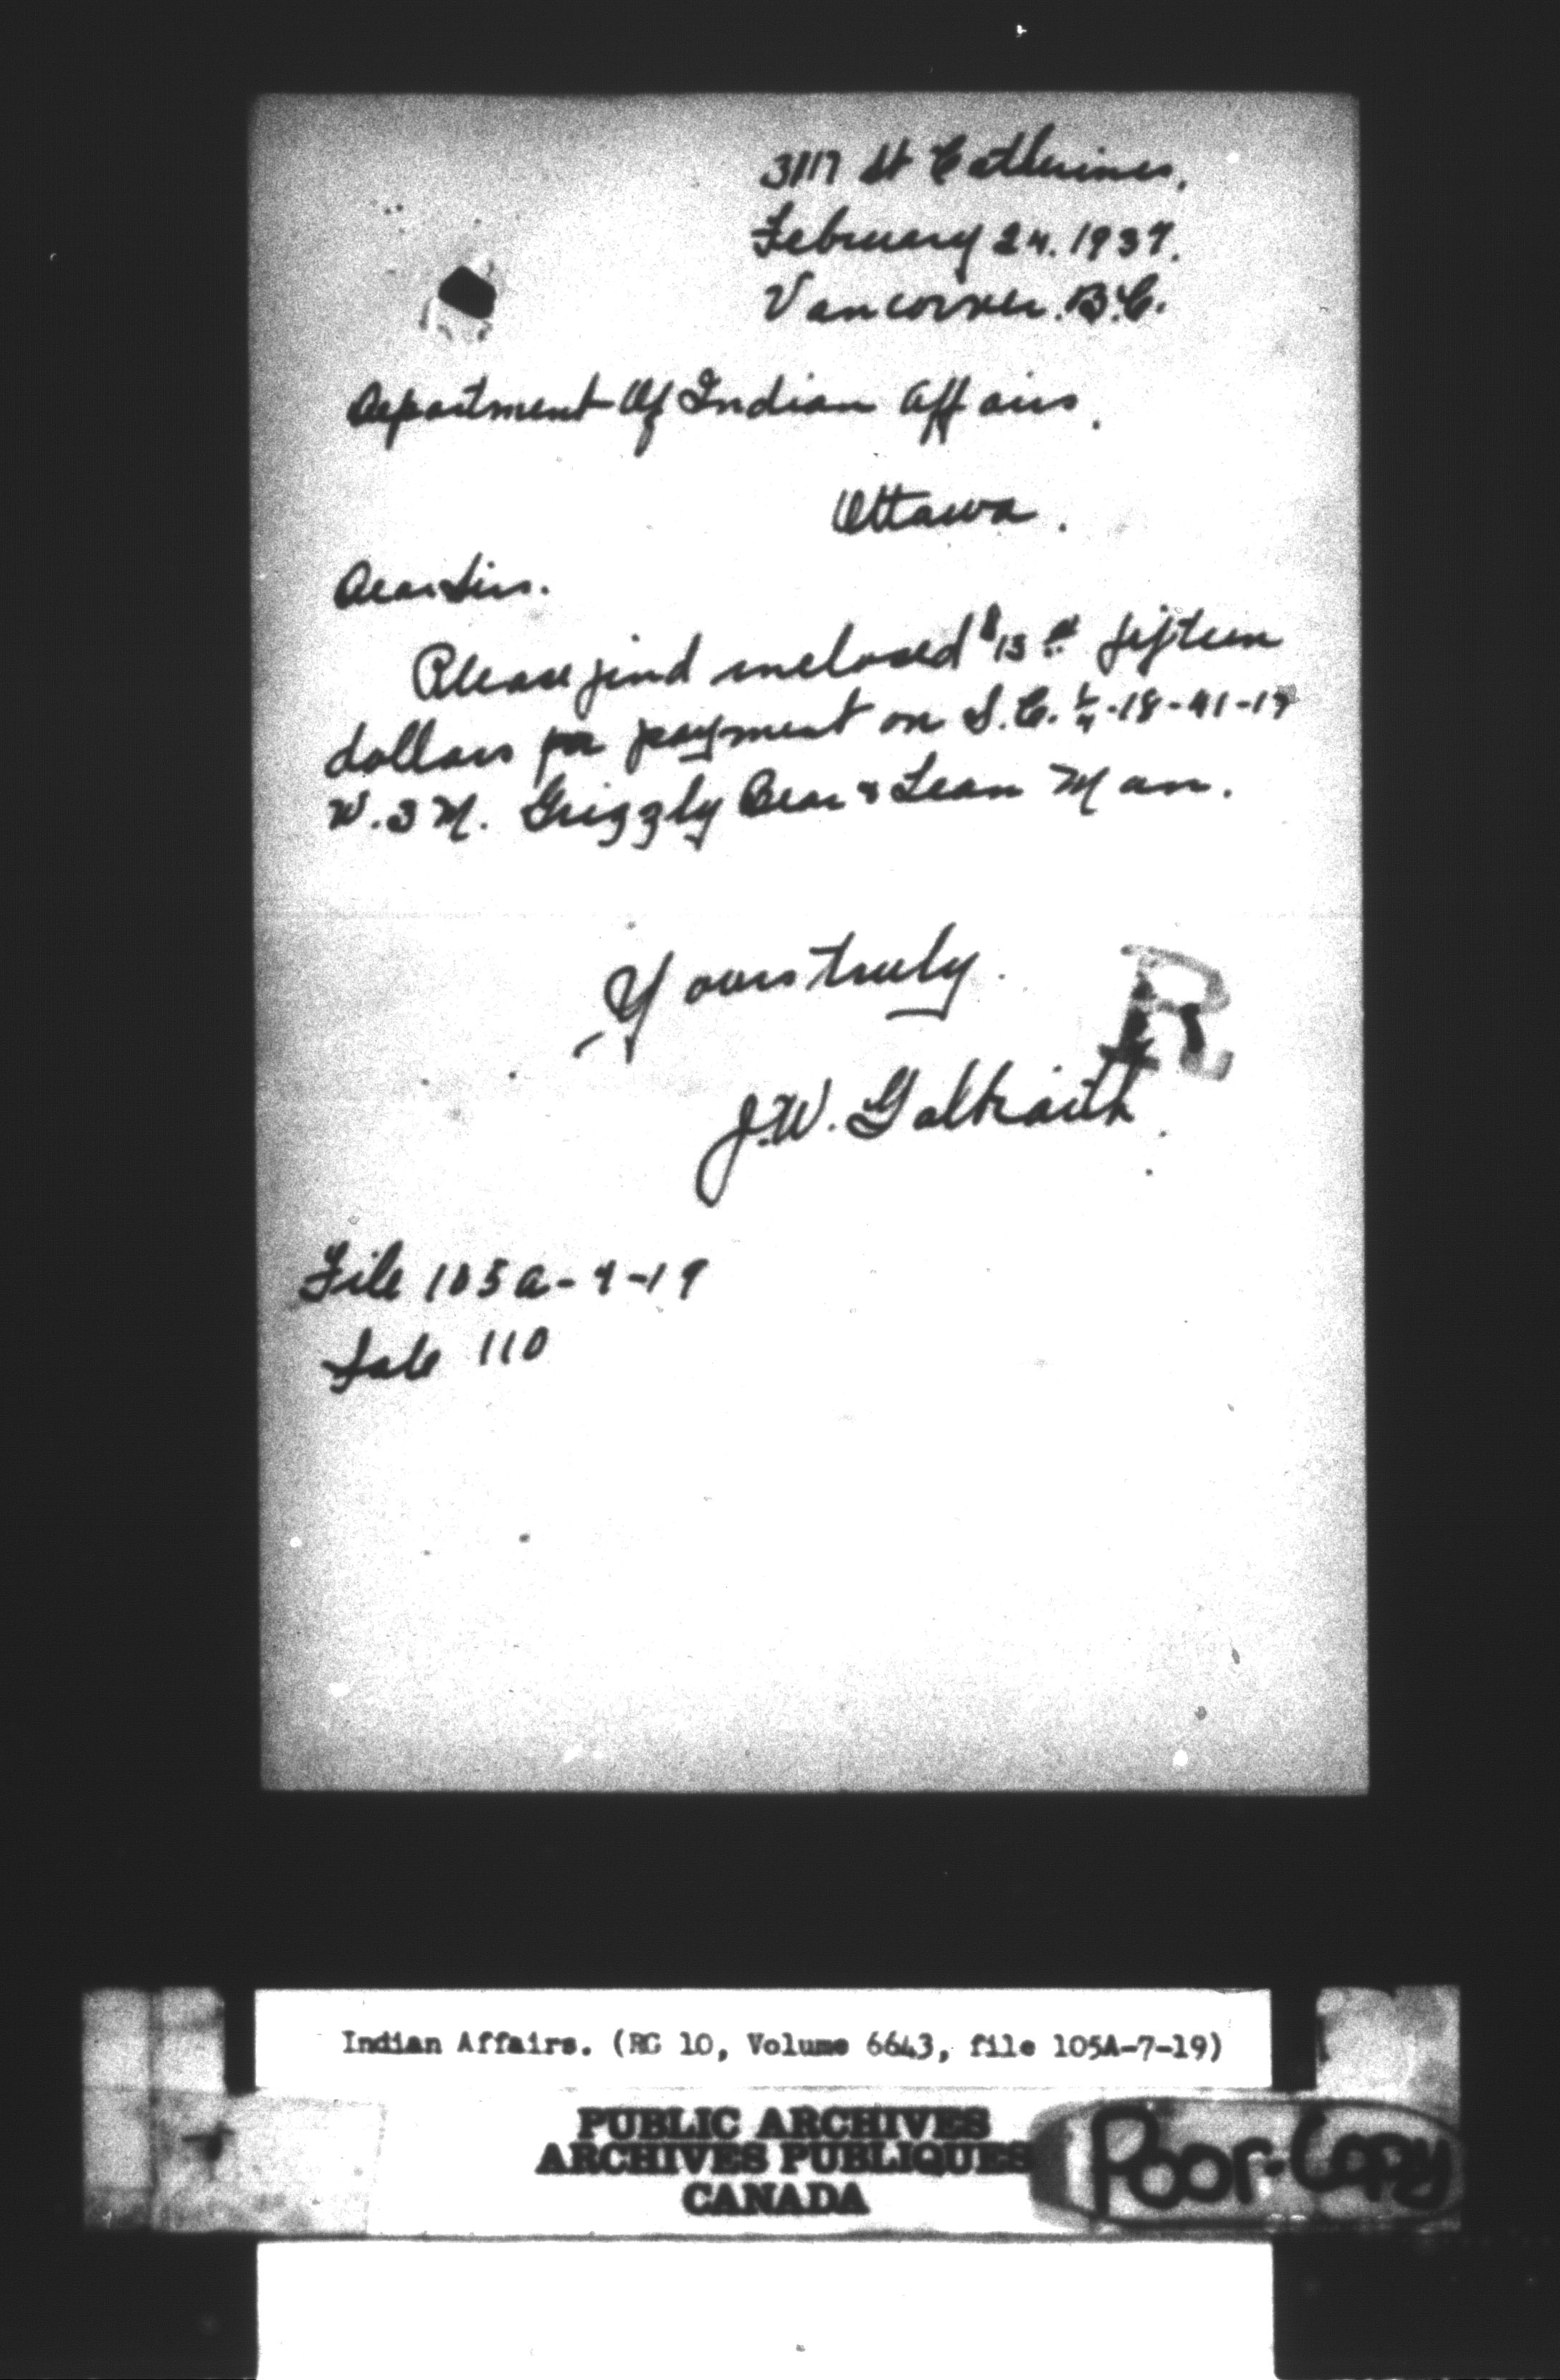 3117 St Catherines.
February 24. 1937.
Vancouver. B.C.
Department Of Indian Affairs.
Ottawa.
Dear Sirs.
Please find inclosed $15.00 fifteen
dollars for payment on S.E. 1/4-18-41-17
W. 3 M. Grizzly Bear & Lean Man.
Yours truly.
R
J.W. Galbraith.
File 105A-7-19
Sale 110
Indian Affairs. (RG 10, Volume 6643, file 105A-7-19)
PUBLIC ARCHIVES
ARCHIVES PUBLIQUES
CANADA
Poor-Copy